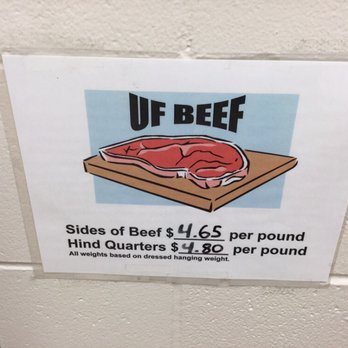 UF BEEF
Sides of Beef $ 4.65 per pound
Hind Quarters $ 4.80 per pound
All weights based on dressed hanging weight.